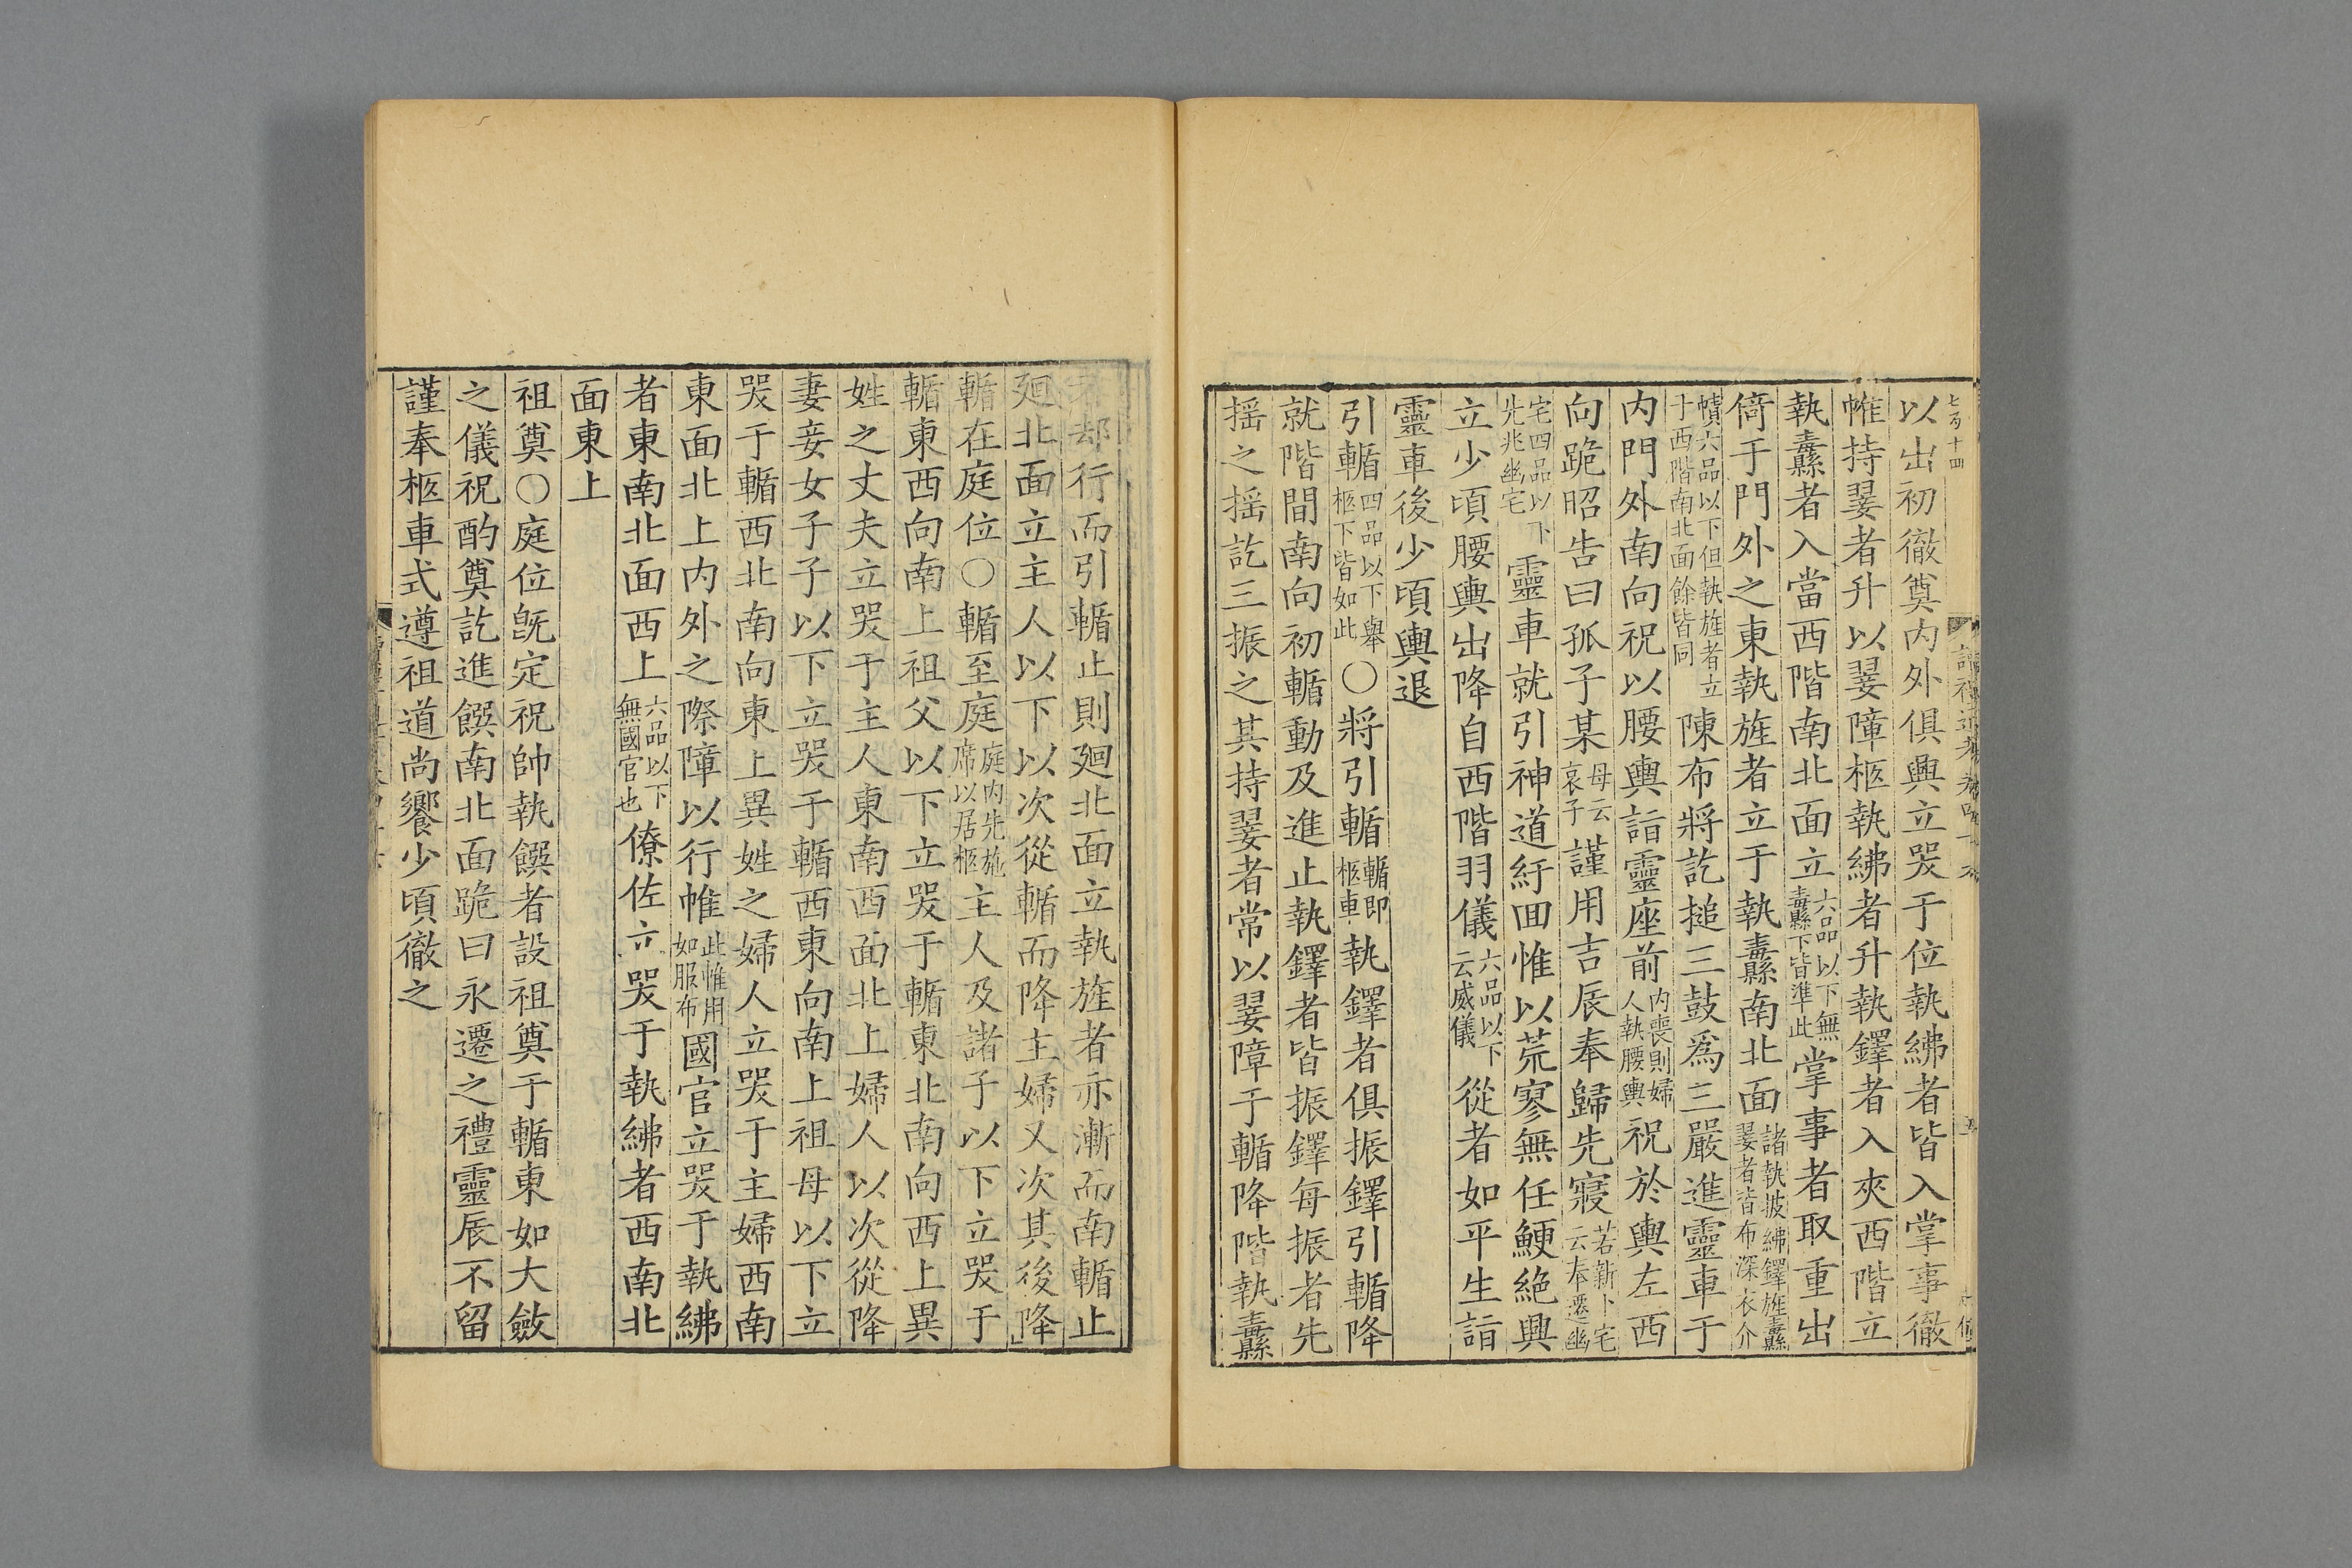 以出初徹奠内外俱興立哭于位執紼者皆入掌事徹
帷持翣者升以翣障柩執紼者升執鐸者入夾西階立
執纛者入當西階南北面立六品以下無纛下皆準此掌事者取重出
倚于門外之東執旌者立于執纛南北面諸執披紼鐸旌纛翣者皆布深衣介
幘六品以下但執旌者立于西階南北面餘皆同陳布將訖搥三鼓爲三嚴進靈車于
内門外南向祝以腰輿詣靈座前内喪則婦人執腰輿祝於輿左西
向跪昭告曰孤子某母云哀子謹用吉辰奉歸先寢若新卜宅云奉遷幽
宅四品以下先兆幽宅靈車就引神道紆回惟以荒寥無任鯁絶興
立少頃腰輿出降自西階羽儀六品以下云威儀從者如平生詣
靈車後少頃輿退
引輴四品以下舉柩下皆如此〇將引輴輴即柩車執鐸者俱振鐸引輴降
就階間南向初輴動及進止執鐸者皆振鐸每振者先
揺之揺訖三振之其持翣者常以翣障于輴降階執纛
者却行而引輴止則廻北面立執旌者亦漸而南輴止
廻北面立主人以下以次從輴而降主婦又次其後降
輴在庭位〇輴至庭庭内先施席以居柩主人及諸子以下立哭于
輴東西向南上祖父以下立哭于輴東北南向西上異
姓之丈夫立哭于主人東南西面北上婦人以次從降
妻妾女子子以下立哭于輴西東向南上祖母以下立
哭于輴西北南向東上異姓之婦人立哭于主婦西南
東面北上内外之際障以行帷此帷用如服布國官立哭于執紼
者東南北面西上六品以下無國官也僚佐立哭于執紼者西南北
面東上
祖奠〇庭位既定祝帥執饌者設祖奠于輴東如大斂
之儀祝酌奠訖進饌南北面跪曰永遷之禮靈辰不留
謹奉柩車式遵祖道尚饗少頃徹之